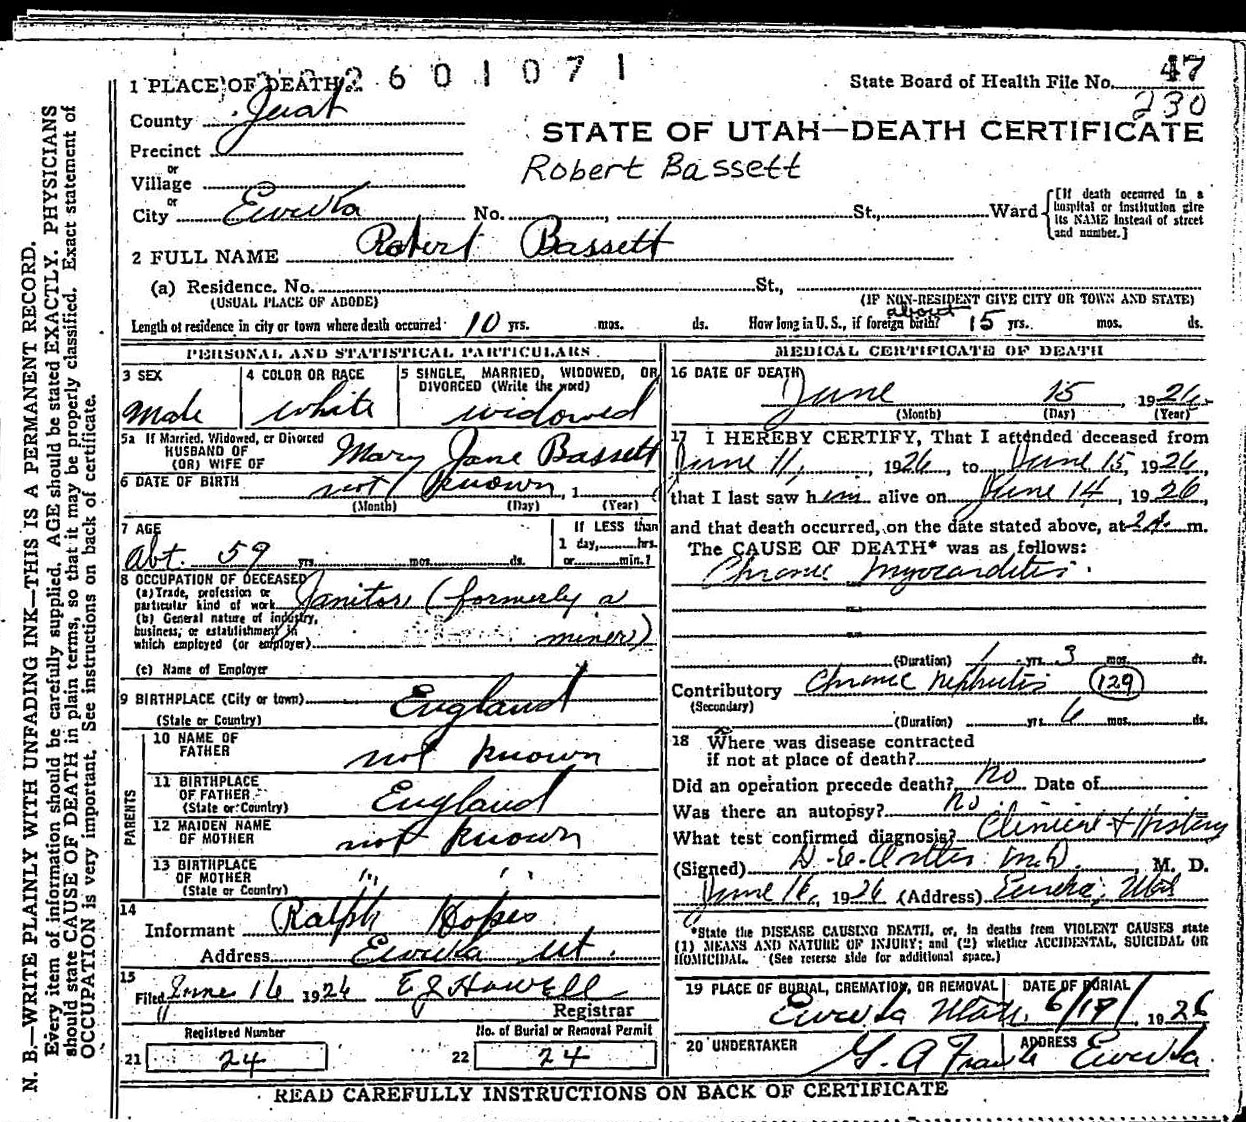 2601071
1 PLACE OF DEATH
State Board of Health File No. 47
230
County Juab
STATE OF UTAH—DEATH CERTIFICATE
Precinct
Robert Bassett
or
Village
or
City Eureka No. , St., Ward
[If death occurred in a hospital or institution give its NAME instead of street and number.]
2 FULL NAME Robert Bassett
(a) Residence. No. St.,
(USUAL PLACE OF ABODE) (IF NON-RESIDENT GIVE CITY OR TOWN AND STATE)
Length of residence in city or town where death occurred 10 yrs. mos. ds. How long in U. S., if foreign birth? about 15 yrs. mos. ds.
PERSONAL AND STATISTICAL PARTICULARS
3 SEX
Male
4 COLOR OR RACE
White
5 SINGLE, MARRIED, WIDOWED, OR DIVORCED (Write the word)
widowed
5a If Married, Widowed, or Divorced
HUSBAND OF
(OR) WIFE OF Mary Jane Bassett
6 DATE OF BIRTH not known , 1
(Month) (Day) (Year)
7 AGE
Abt. 59 yrs. mos. ds.
If LESS than
1 day, hrs.
or min.?
8 OCCUPATION OF DECEASED
(a) Trade, profession or
particular kind of work Janitor (formerly a
(b) General nature of industry,
business, or establishment in
which employed (or employer) miner)
(c) Name of Employer
9 BIRTHPLACE (City or town)
(State or Country) England
PARENTS
10 NAME OF
FATHER not known
11 BIRTHPLACE
OF FATHER
(State or Country) England
12 MAIDEN NAME
OF MOTHER not known
13 BIRTHPLACE
OF MOTHER
(State or Country) " "
14
Informant Ralph Hopes
Address Eureka Ut.
15
Filed June 16 1926 E J Howell
Registrar
Registered Number
21 24
No. of Burial or Removal Permit
22 24
MEDICAL CERTIFICATE OF DEATH
16 DATE OF DEATH
June 15 , 1926
(Month) (Day) (Year)
17 I HEREBY CERTIFY, That I attended deceased from
June 11, , 1926, to June 15, 1926,
that I last saw him alive on June 14, 1926,
and that death occurred, on the date stated above, at 2 A. m.
The CAUSE OF DEATH* was as follows:
Chronic Myocarditis.
(Duration) 1 yrs. 3 mos. ds.
Contributory Chronic Nephritis 129
(Secondary)
(Duration) yrs. 6 mos. ds.
18 Where was disease contracted
if not at place of death?
Did an operation precede death? no Date of
Was there an autopsy? no
What test confirmed diagnosis? Clinical & History
(Signed) M. D.
June 16, 1926 (Address) Eureka, Utah
*State the DISEASE CAUSING DEATH, or, in deaths from VIOLENT CAUSES state
(1) MEANS AND NATURE OF INJURY; and (2) whether ACCIDENTAL, SUICIDAL OR
HOMICIDAL. (See reverse side for additional space.)
19 PLACE OF BURIAL, CREMATION, OR REMOVAL
Eureka Utah
DATE OF BURIAL
6/17/, 1926
20 UNDERTAKER
G. A Franks
ADDRESS
Eureka
READ CAREFULLY INSTRUCTIONS ON BACK OF CERTIFICATE
N. B.—WRITE PLAINLY WITH UNFADING INK—THIS IS A PERMANENT RECORD.
Every item of information should be carefully supplied. AGE should be stated EXACTLY. PHYSICIANS
should state CAUSE OF DEATH in plain terms, so that it may be properly classified. Exact statement of
OCCUPATION is very important. See instructions on back of certificate.